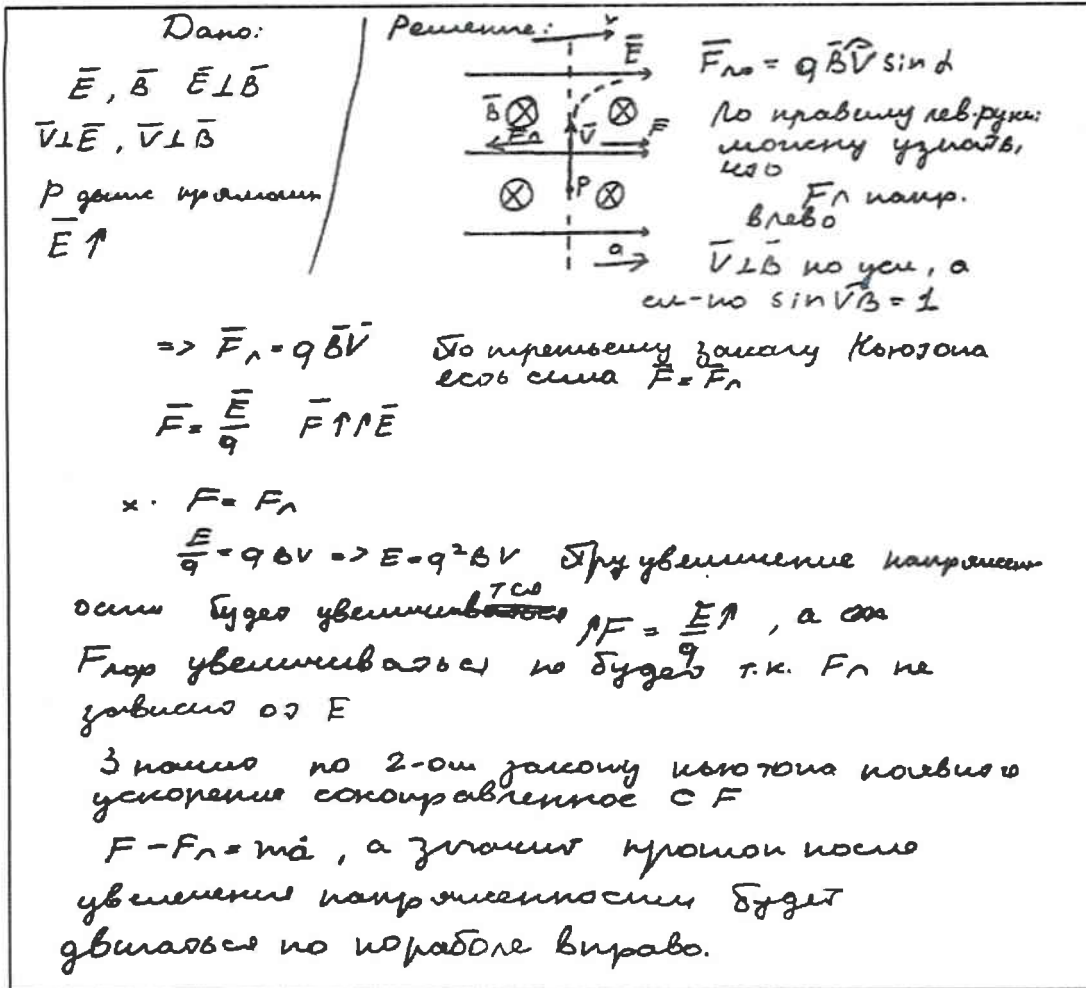 Дано:
E̅, B̅ E̅⊥B̅
V̅⊥E̅, V̅⊥B̅
p движ прямолин
E̅ ↑
Решение:
x
E̅
B̅
F̅л V̅ F̅
P
a
F̅ло = q B̅V̅ sin α
По правилу лев. руки:
можну узнать,
что
Fл напр.
влево
V̅⊥B̅ по усл, а
сл-но sin V̅B̅ = 1
=> F̅л = q B̅V̅ По третьему закану Ньютона
есть сила F̅ = F̅л
F̅ = E̅/q F̅ ↑↑ E̅
x: F = Fл
E/q = q BV => E = q²BV При увеличение напряжен
ости будет увеличиватся ↑F = E↑/q, а
Fлор увеличиваться не будет т.к. Fл не
зависит от E
Значит по 2-ому закону ньютона появится
ускорение сонаправленное с F
F - Fл = ma̅, а значит протон после
увеличения напряженности будет
двигаться по параболе вправо.